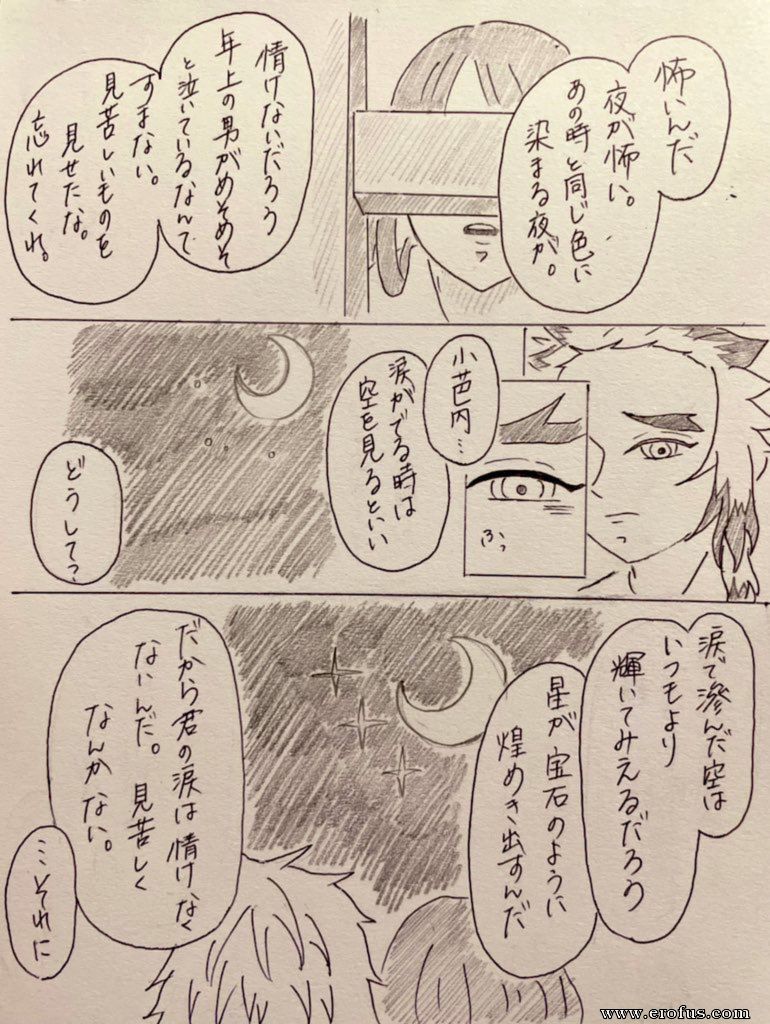 怖いんだ
夜が怖い。
あの時と同じ色に
染まる夜が。
情けないだろう
年上の男がめそめそ
と泣いているなんて
すまない。
見苦しいものを
見せたな。
忘れてくれ。
小芭内…
ふっ
涙がでる時は
空を見るといい
どうして?
涙で滲んだ空は
いつもより
輝いてみえるだろう
星が宝石のように
煌めき出すんだ
だから君の涙は情けなく
ないんだ。見苦しく
なんかない。
…それに
www.erofus.com